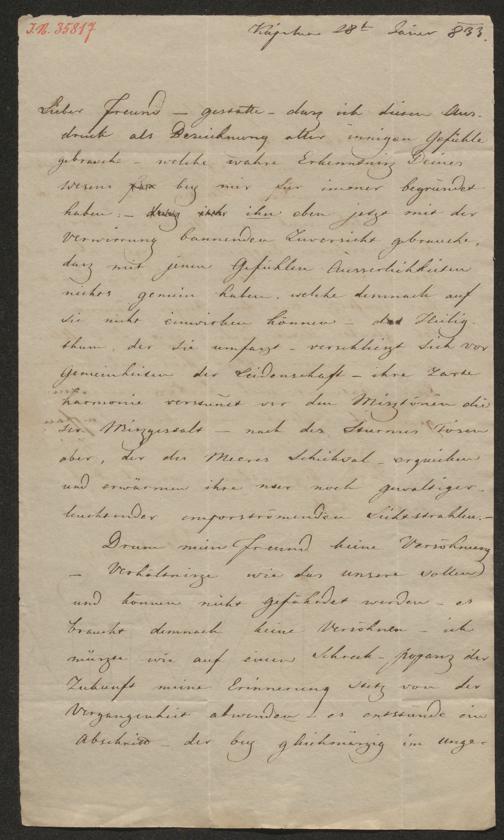 I.N. 35817
28t Jäner 833.
Lieber Freund – gestatte – dasz ich diesen Aus-
druck als Bezeichnung aller innigen Gefühle
gebrauche – welche wahre Erkenntnisz Deines
Wesens bey mir für immer begründet
haben – ihn eben jetzt mit der
Verwirrung bannenden Zuversicht gebrauche,
dasz mit jenen Gefühlen Äusserlichkeiten
nichts gemein haben, welche demnach auf
sie nicht einwirken können – das Heilig-
thum, der sie umfaszt – verschlieszt sich vor
Gemeinheiten der Leidenschaft – ihre zarte
Harmonie verstumt vor den Misztönen die
ser Miszgestalt – nach des Sturmes Tosen
aber, der des Meeres Schicksal – erquicken
und erwärmen ihre nur noch gewaltiger
leuchtender emporströmenden Liebesstrahlen. –
Drum mein Freund keine Versöhnung
– Verhältnisze wie das unsere sollen
und können nicht gefährdet werden – es
braucht demnach keine Versöhnen – ich
müszte wie auf einen Schreck-popanz der
Zukunft meine Erinnerung stets von der
Vergangenheit abwenden – es entstünde ein
Abschnitt – der bey gleichmäszig im unger